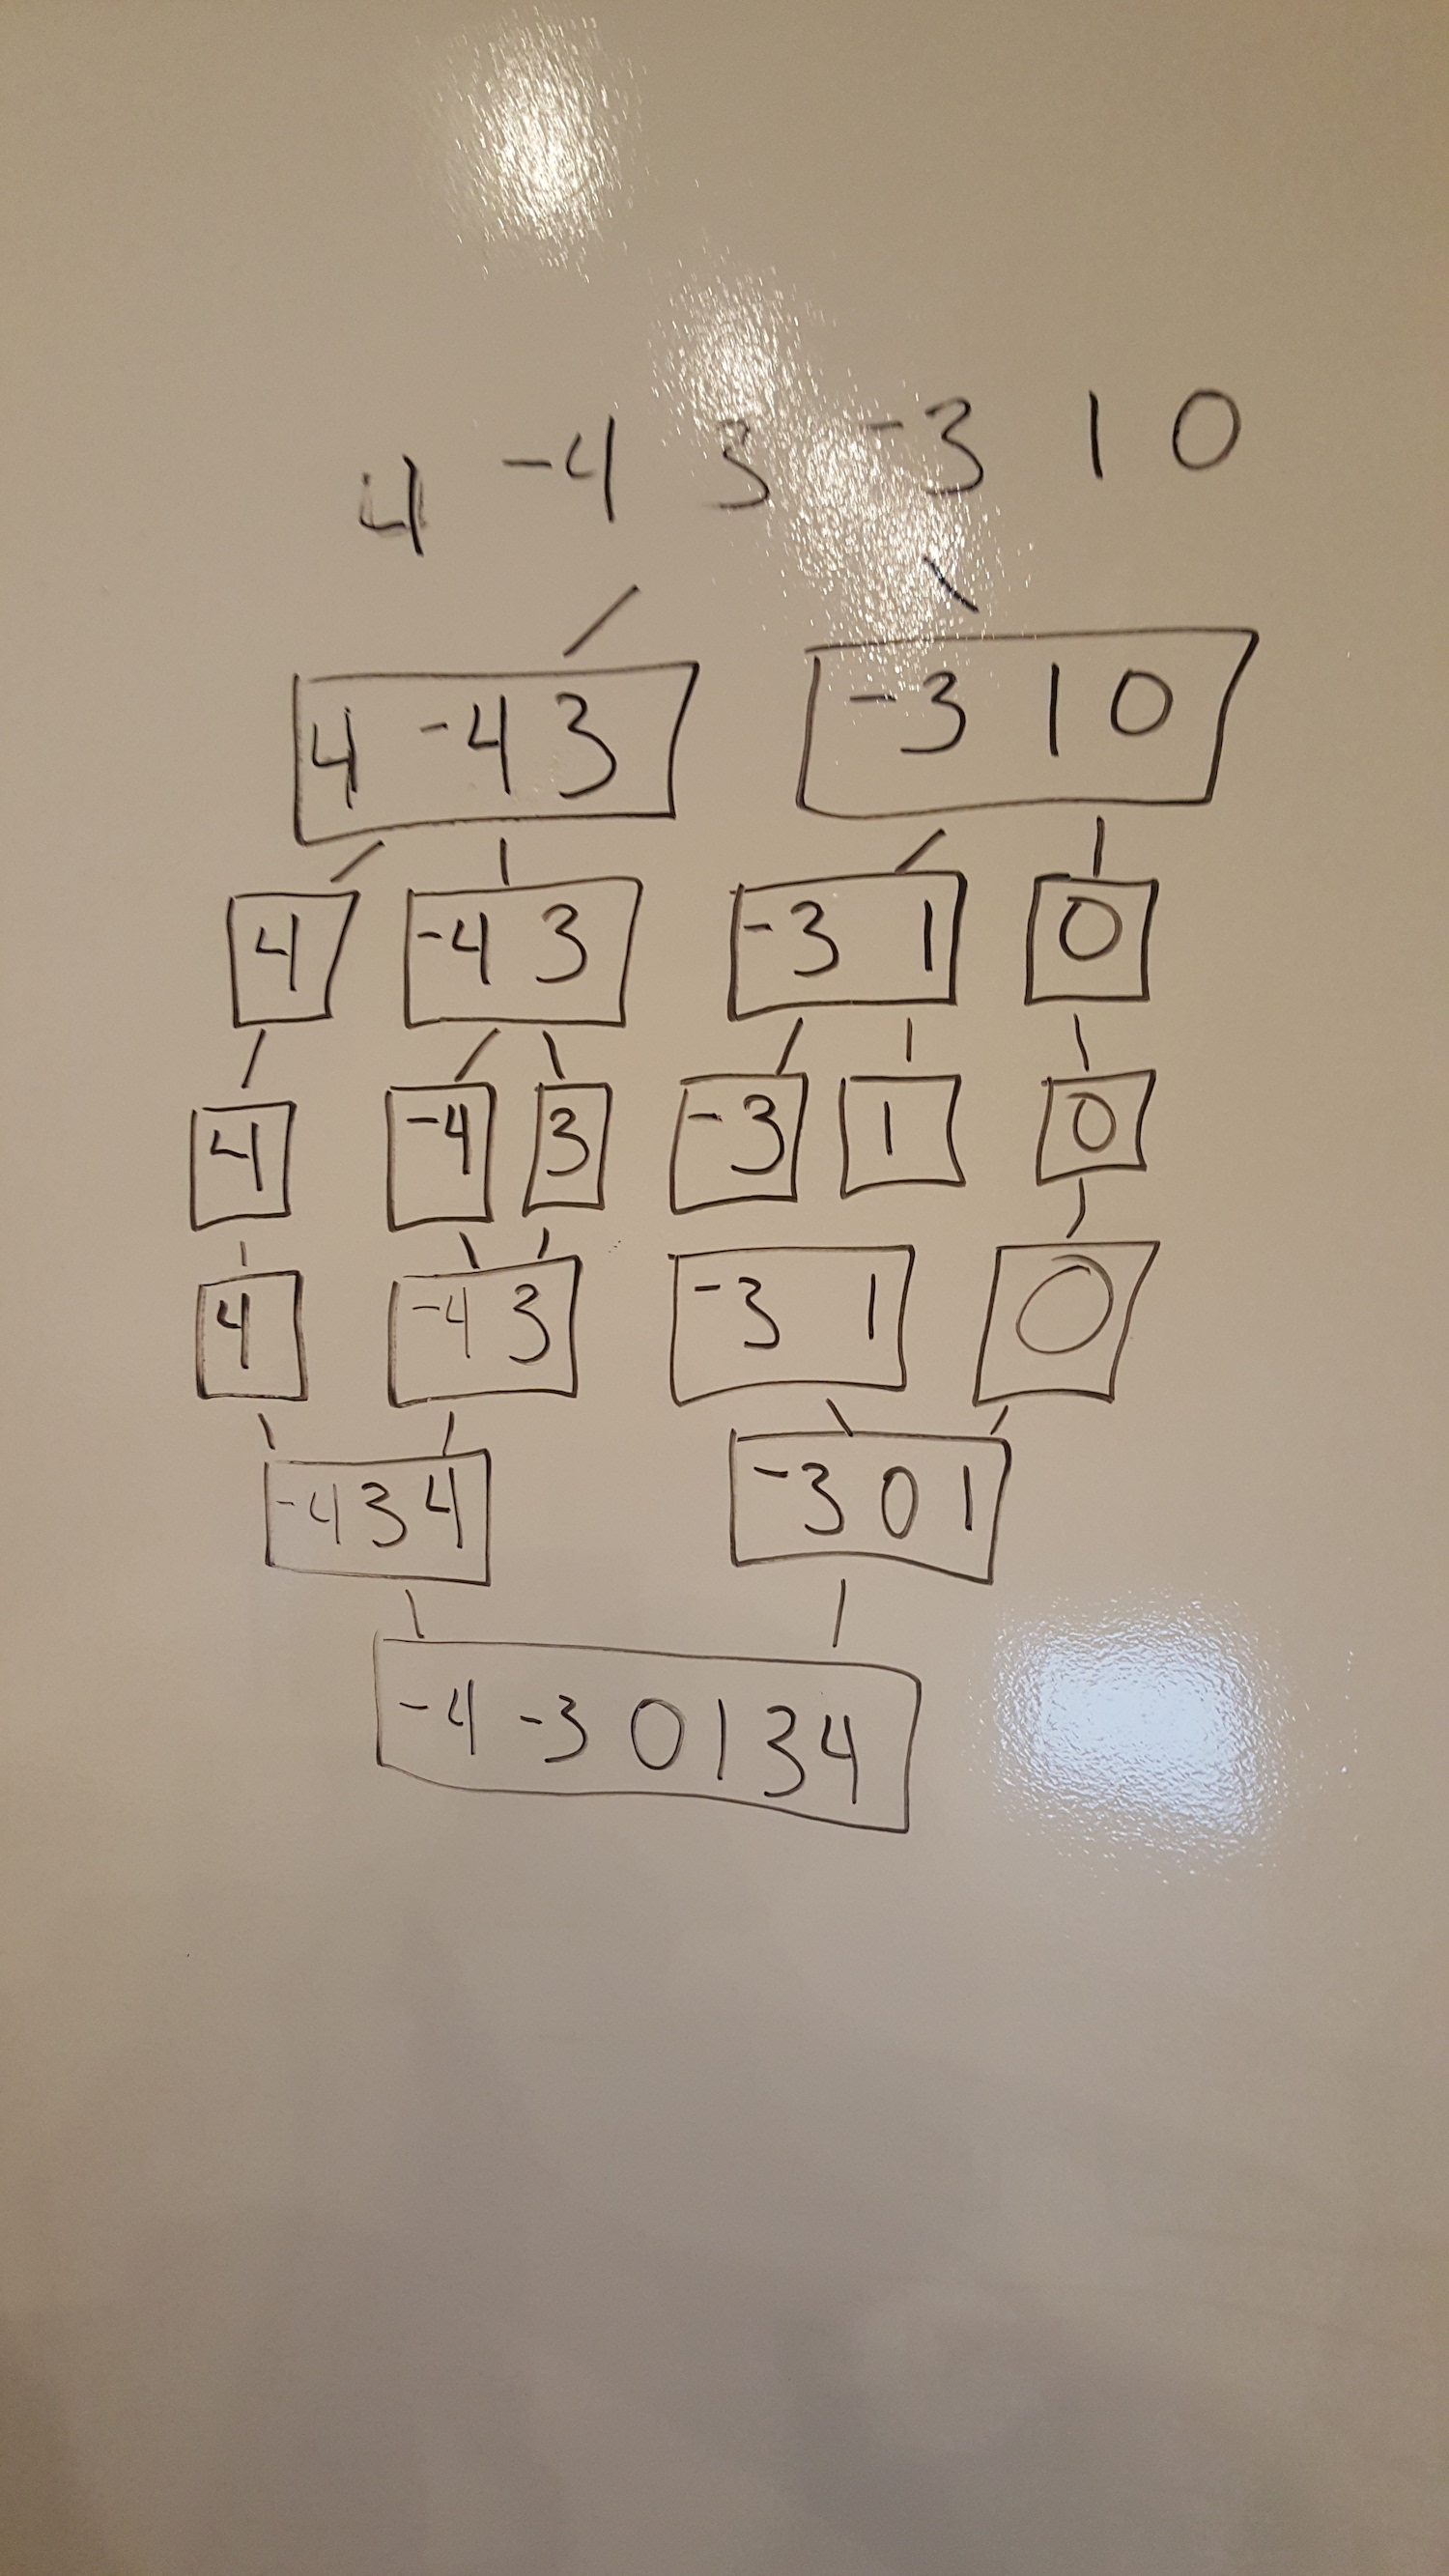 4 -4 3 -3 1 0
4 -4 3 -3 1 0
4 -4 3 -3 1 0
4 -4 3 -3 1 0
4 -4 3 -3 1 0
-4 3 4 -3 0 1
-4 -3 0 1 3 4